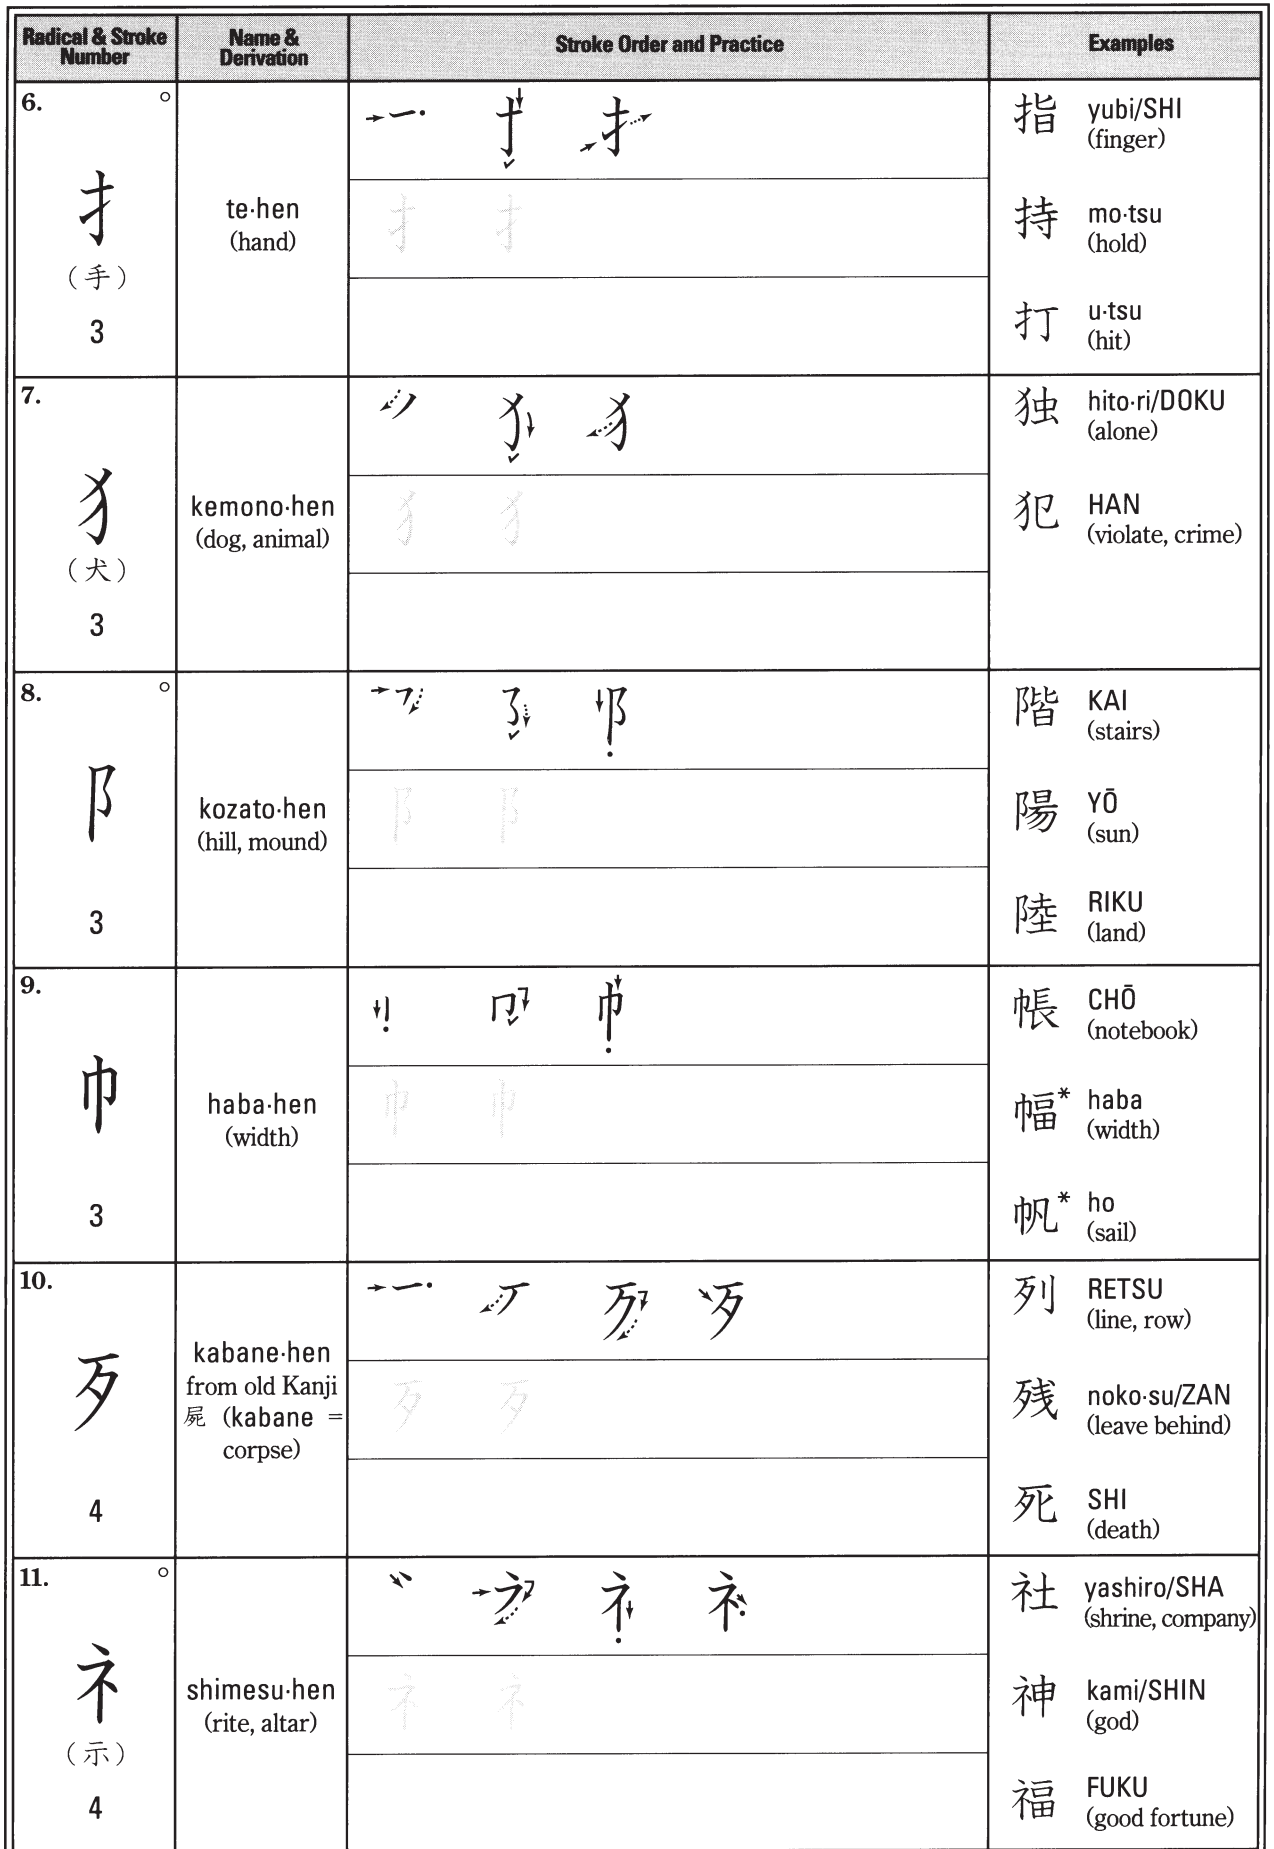 Radical & Stroke Number
Name & Derivation
Stroke Order and Practice
Examples
6.
扌
（手）
3
te·hen
(hand)
指 yubi/SHI
(finger)
持 mo·tsu
(hold)
打 u·tsu
(hit)
7.
犭
（犬）
3
kemono·hen
(dog, animal)
独 hito·ri/DOKU
(alone)
犯 HAN
(violate, crime)
8.
阝
3
kozato·hen
(hill, mound)
階 KAI
(stairs)
陽 YŌ
(sun)
陸 RIKU
(land)
9.
巾
3
haba·hen
(width)
帳 CHŌ
(notebook)
幅* haba
(width)
帆* ho
(sail)
10.
歹
4
kabane·hen
from old Kanji
屍 (kabane =
corpse)
列 RETSU
(line, row)
残 noko·su/ZAN
(leave behind)
死 SHI
(death)
11.
礻
（示）
4
shimesu·hen
(rite, altar)
社 yashiro/SHA
(shrine, company)
神 kami/SHIN
(god)
福 FUKU
(good fortune)